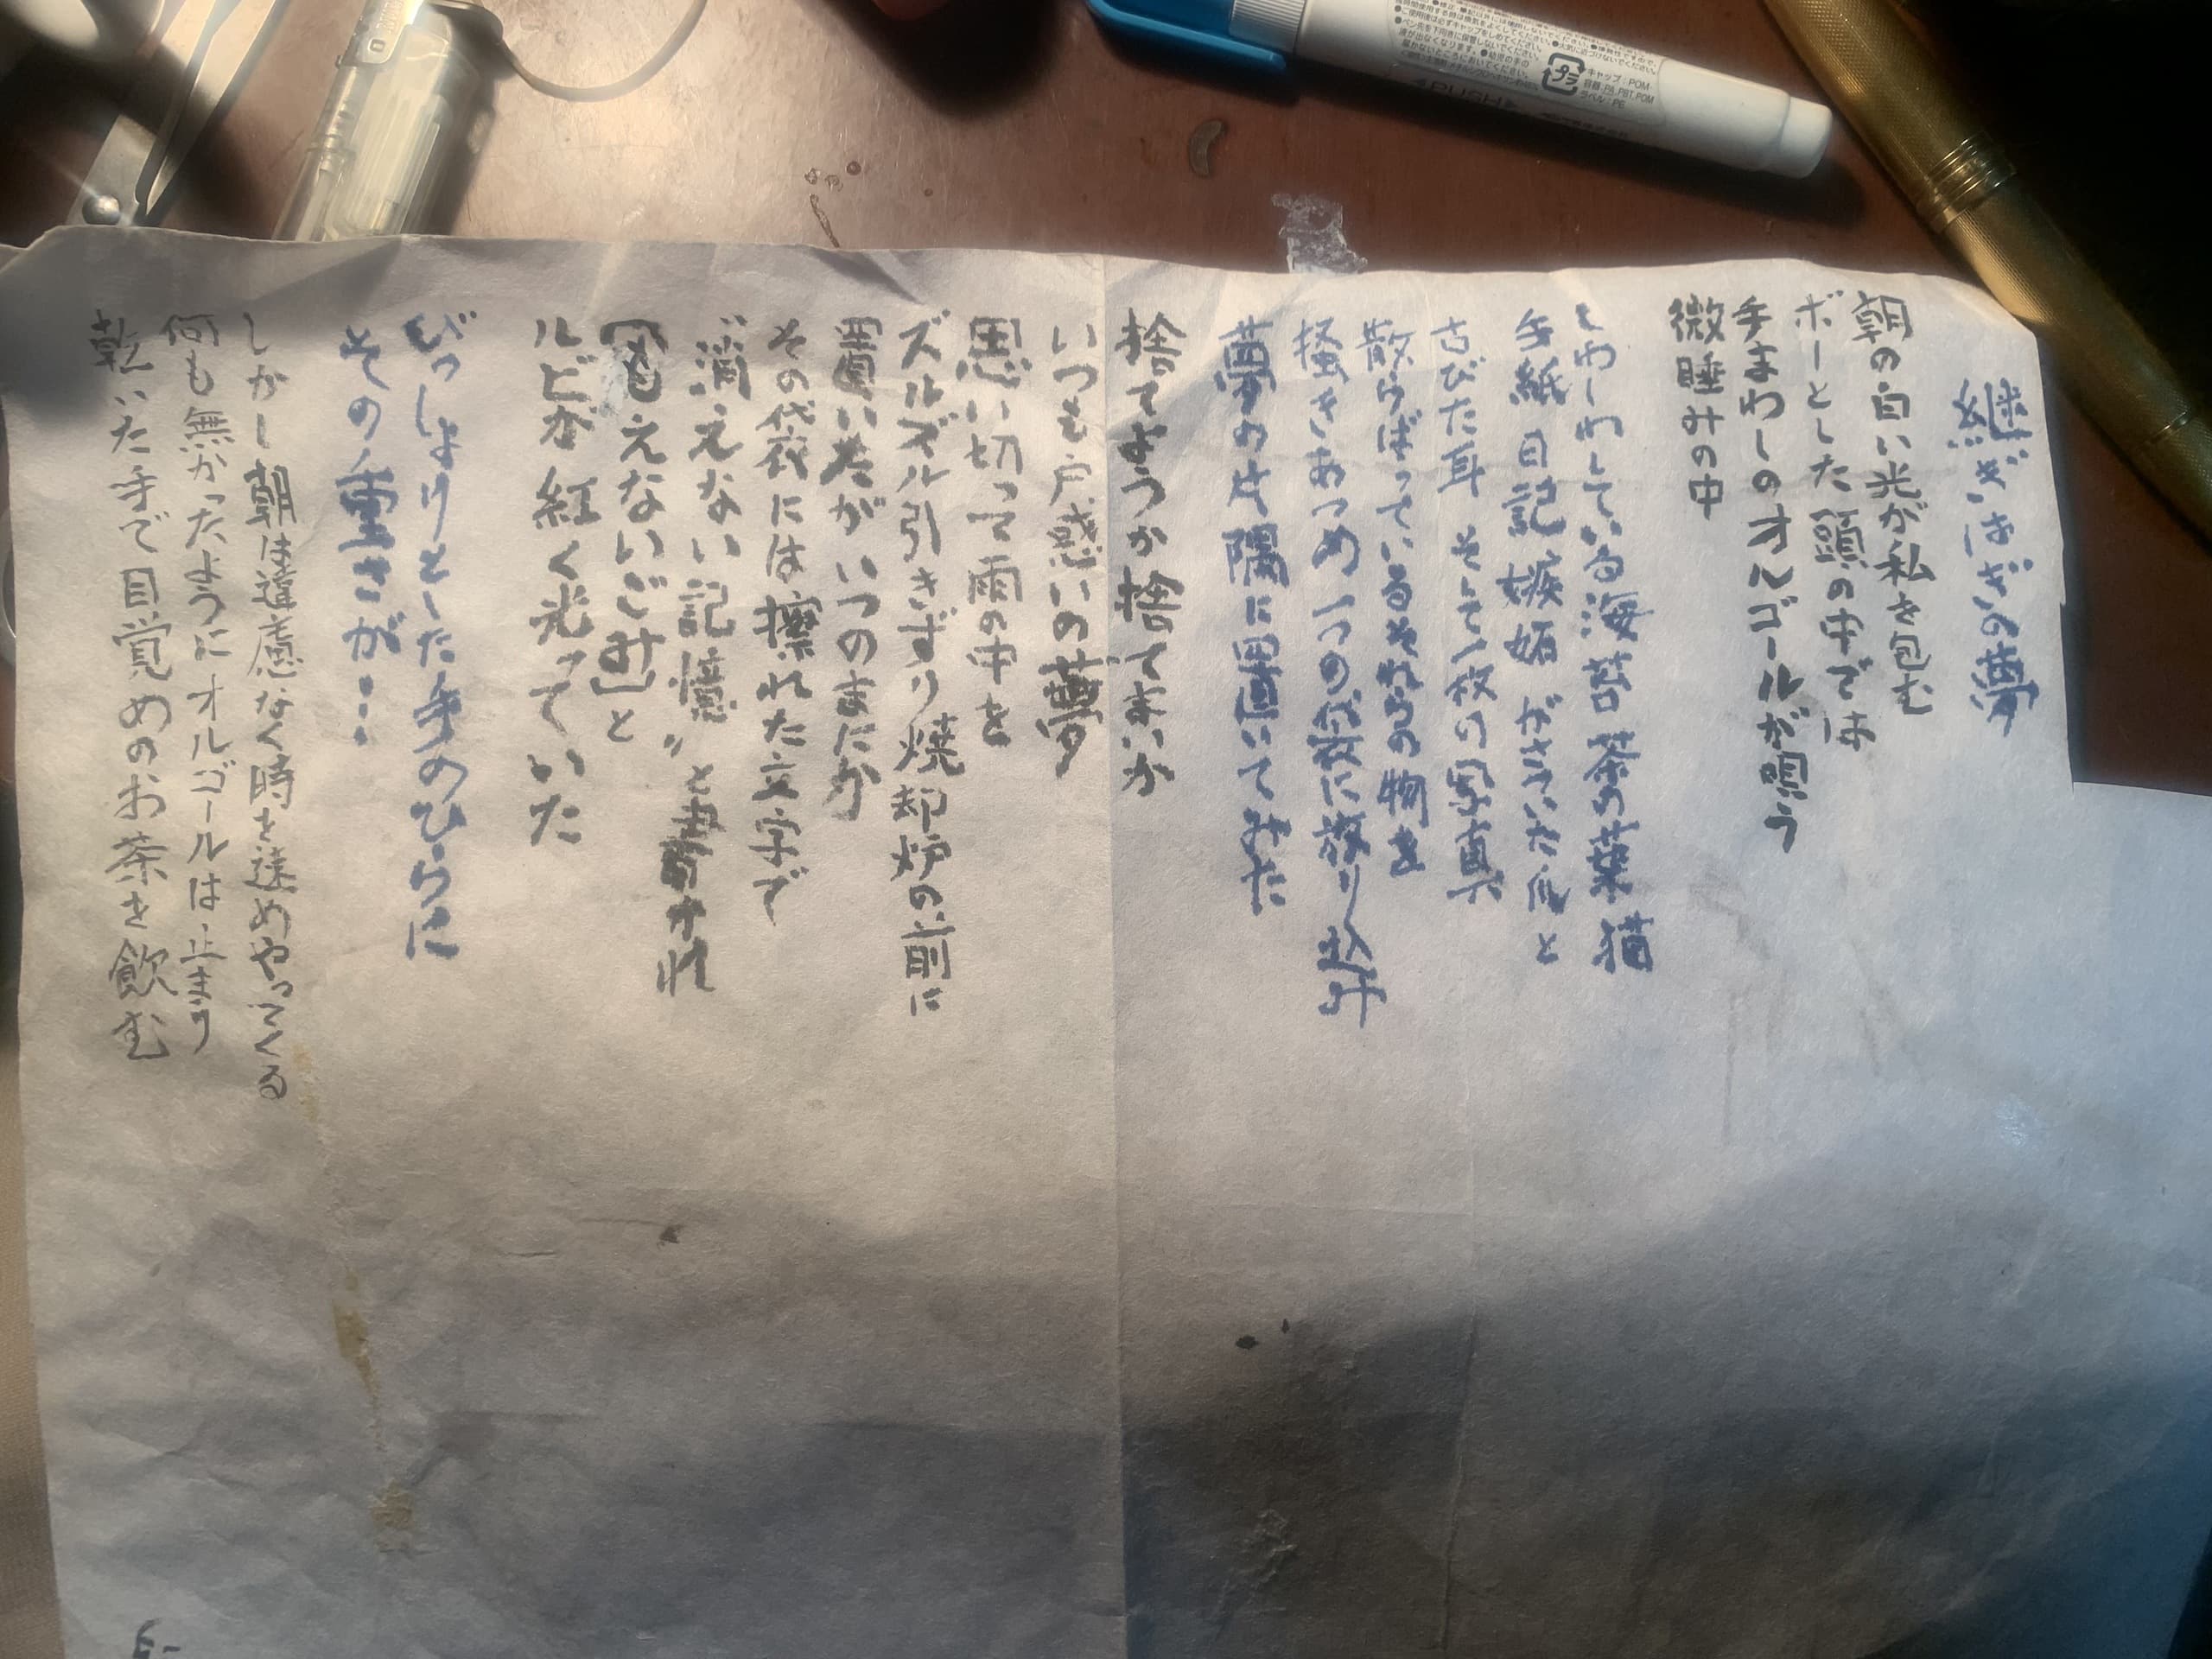 継ぎはぎの夢
朝の白い光が私を包む
ボーとした頭の中では
手まわしのオルゴールが唄う
微睡みの中
しわしわしている海苔 茶の葉 猫
手紙 日記 嫉妬 がさいた と
古びた耳 そして1枚の写真
散らばっている の物を
掻きあつめ 一つの袋に放り込み
夢の片隅に置いてみた
捨てようか捨てまいか
いつも戸惑いの夢
思い切って雨の中を
ズルズル引きずり焼却炉の前に
置いたが いつのまにか
その袋には擦れた文字で
〝消えない記憶〟と書かれ
「もえないごみ」と
ルビが紅く光っていた
びっしょりとした手のひらに
その重さが…
しかし朝は遠慮なく時を進めやってくる
何も無かったようにオルゴールは止まり
乾いた手で目覚めのお茶を飲む
キャップ：POM
容器：PA,PBT,POM
ラベル：PE
プラ